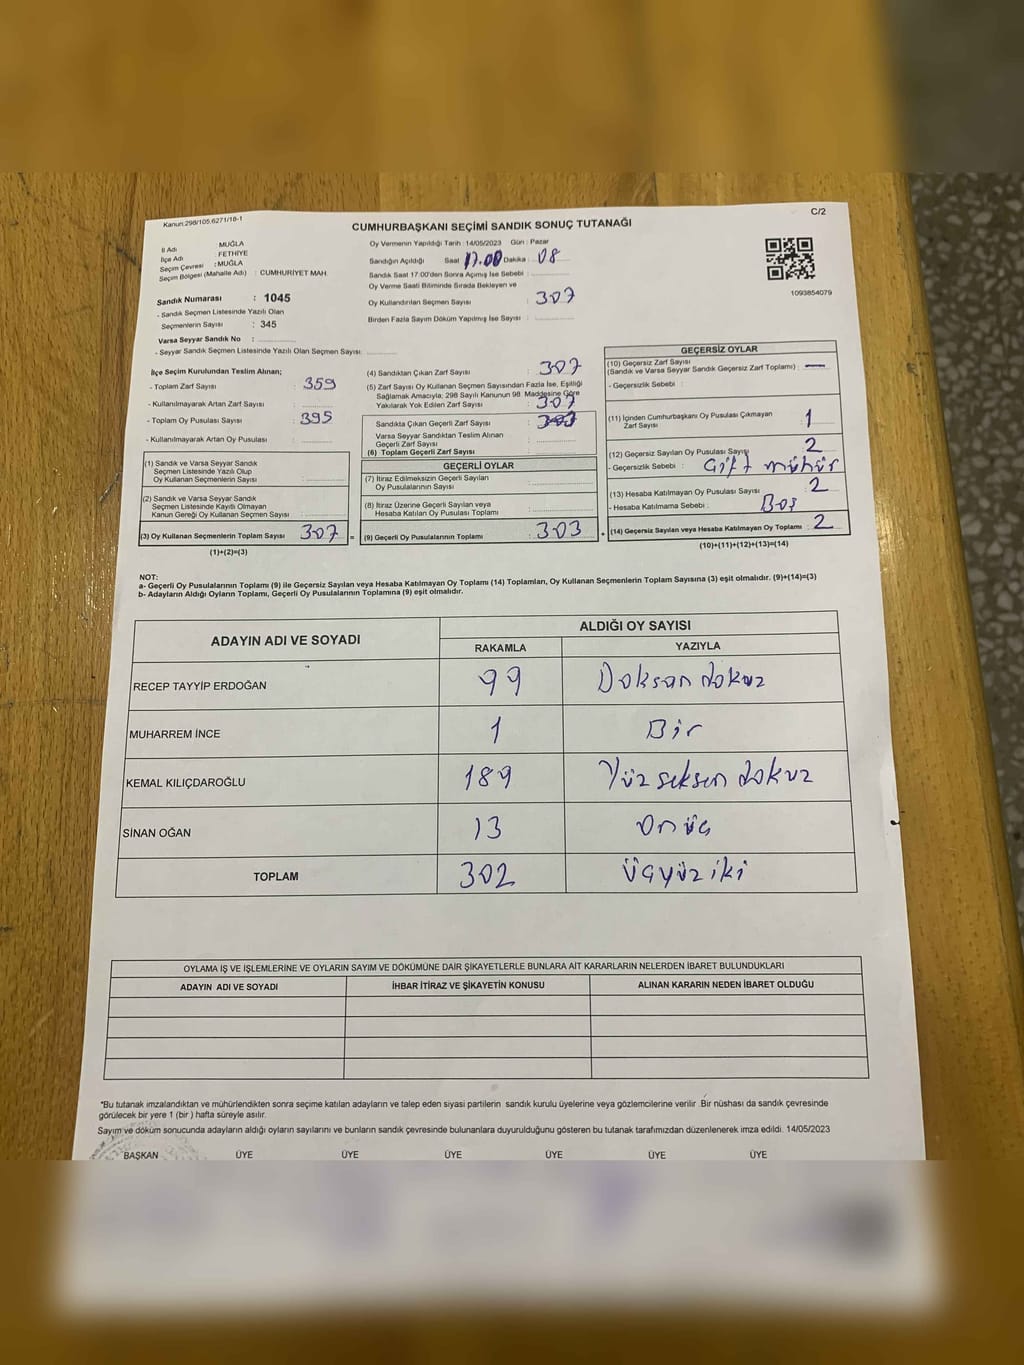 Kanun:298/105.6271/18-1
C/2
CUMHURBAŞKANI SEÇİMİ SANDIK SONUÇ TUTANAĞI
İl Adı : MUĞLA
İlçe Adı : FETHİYE
Seçim Çevresi : MUĞLA
Seçim Bölgesi (Mahalle Adı) : CUMHURİYET MAH.
Sandık Numarası : 1045
- Sandık Seçmen Listesinde Yazılı Olan
Seçmenlerin Sayısı : 345
Varsa Seyyar Sandık No :
- Seyyar Sandık Seçmen Listesinde Yazılı Olan Seçmen Sayısı
Oy Vermenin Yapıldığı Tarih : 14/05/2023 Gün : Pazar
Sandığın Açıldığı Saat 17.00 Dakika : 08
Sandık Saat 17.00'den Sonra Açımış İse Sebebi :
Oy Verme Saati Bitiminde Sırada Bekleyen ve
Oy Kullandırılan Seçmen Sayısı : 307
Birden Fazla Sayım Döküm Yapılmış İse Sayısı :
1093854079
İlçe Seçim Kurulundan Teslim Alınan;
- Toplam Zarf Sayısı : 359
- Kullanılmayarak Artan Zarf Sayısı :
- Toplam Oy Pusulası Sayısı : 395
- Kullanılmayarak Artan Oy Pusulası :
(1) Sandık ve Varsa Seyyar Sandık
Seçmen Listesinde Yazılı Olup
Oy Kullanan Seçmenlerin Sayısı :
(2) Sandık ve Varsa Seyyar Sandık
Seçmen Listesinde Kayıtlı Olmayan
Kanun Gereği Oy Kullanan Seçmen Sayısı :
(3) Oy Kullanan Seçmenlerin Toplam Sayısı 307 =
(1)+(2)=(3)
(4) Sandıktan Çıkan Zarf Sayısı : 307
(5) Zarf Sayısı Oy Kullanan Seçmen Sayısından Fazla İse, Eşitliği
Sağlamak Amacıyla; 298 Sayılı Kanunun 98. Maddesine Göre
Yakılarak Yok Edilen Zarf Sayısı : 307
Sandıkta Çıkan Geçerli Zarf Sayısı :
Varsa Seyyar Sandıktan Teslim Alınan
Geçerli Zarf Sayısı :
(6) Toplam Geçerli Zarf Sayısı :
GEÇERLİ OYLAR
(7) İtiraz Edilmeksizin Geçerli Sayılan
Oy Pusulalarının Sayısı :
(8) İtiraz Üzerine Geçerli Sayılan veya
Hesaba Katılan Oy Pusulası Toplamı :
(9) Geçerli Oy Pusulalarının Toplamı : 303 +
GEÇERSİZ OYLAR
(10) Geçersiz Zarf Sayısı
(Sandık ve Varsa Seyyar Sandık Geçersiz Zarf Toplamı) : —
- Geçersizlik Sebebi :
(11) İçinden Cumhurbaşkanı Oy Pusulası Çıkmayan
Zarf Sayısı : 1
(12) Geçersiz Sayılan Oy Pusulası Sayısı : 2
- Geçersizlik Sebebi : Çift mühür
(13) Hesaba Katılmayan Oy Pusulası Sayısı : 2
- Hesaba Katılmama Sebebi : Boş
(14) Geçersiz Sayılan veya Hesaba Katılmayan Oy Toplamı : 2
(10)+(11)+(12)+(13)=(14)
NOT:
a- Geçerli Oy Pusulalarının Toplamı (9) ile Geçersiz Sayılan veya Hesaba Katılmayan Oy Toplamı (14) Toplamları, Oy Kullanan Seçmenlerin Toplam Sayısına (3) eşit olmalıdır. (9)+(14)=(3)
b- Adayların Aldığı Oyların Toplamı, Geçerli Oy Pusulalarının Toplamına (9) eşit olmalıdır.
ADAYIN ADI VE SOYADI
ALDIĞI OY SAYISI
RAKAMLA YAZIYLA
RECEP TAYYİP ERDOĞAN 99 Doksan dokuz
MUHARREM İNCE 1 Bir
KEMAL KILIÇDAROĞLU 189 Yüz seksen dokuz
SİNAN OĞAN 13 Onüç
TOPLAM 302 Üçyüz iki
OYLAMA İŞ VE İŞLEMLERİNE VE OYLARIN SAYIM VE DÖKÜMÜNE DAİR ŞİKAYETLERLE BUNLARA AİT KARARLARIN NELERDEN İBARET BULUNDUKLARI
ADAYIN ADI VE SOYADI İHBAR İTİRAZ VE ŞİKAYETİN KONUSU ALINAN KARARIN NEDEN İBARET OLDUĞU
*Bu tutanak imzalandıktan ve mühürlendikten sonra seçime katılan adayların ve talep eden siyasi partilerin sandık kurulu üyelerine veya gözlemcilerine verilir .Bir nüshası da sandık çevresinde
görülecek bir yere 1 (bir ) hafta süreyle asılır.
Sayım ve döküm sonucunda adayların aldığı oyların sayılarını ve bunların sandık çevresinde bulunanlara duyurulduğunu gösteren bu tutanak tarafımızdan düzenlenerek imza edildi. 14/05/2023
BAŞKAN ÜYE ÜYE ÜYE ÜYE ÜYE ÜYE